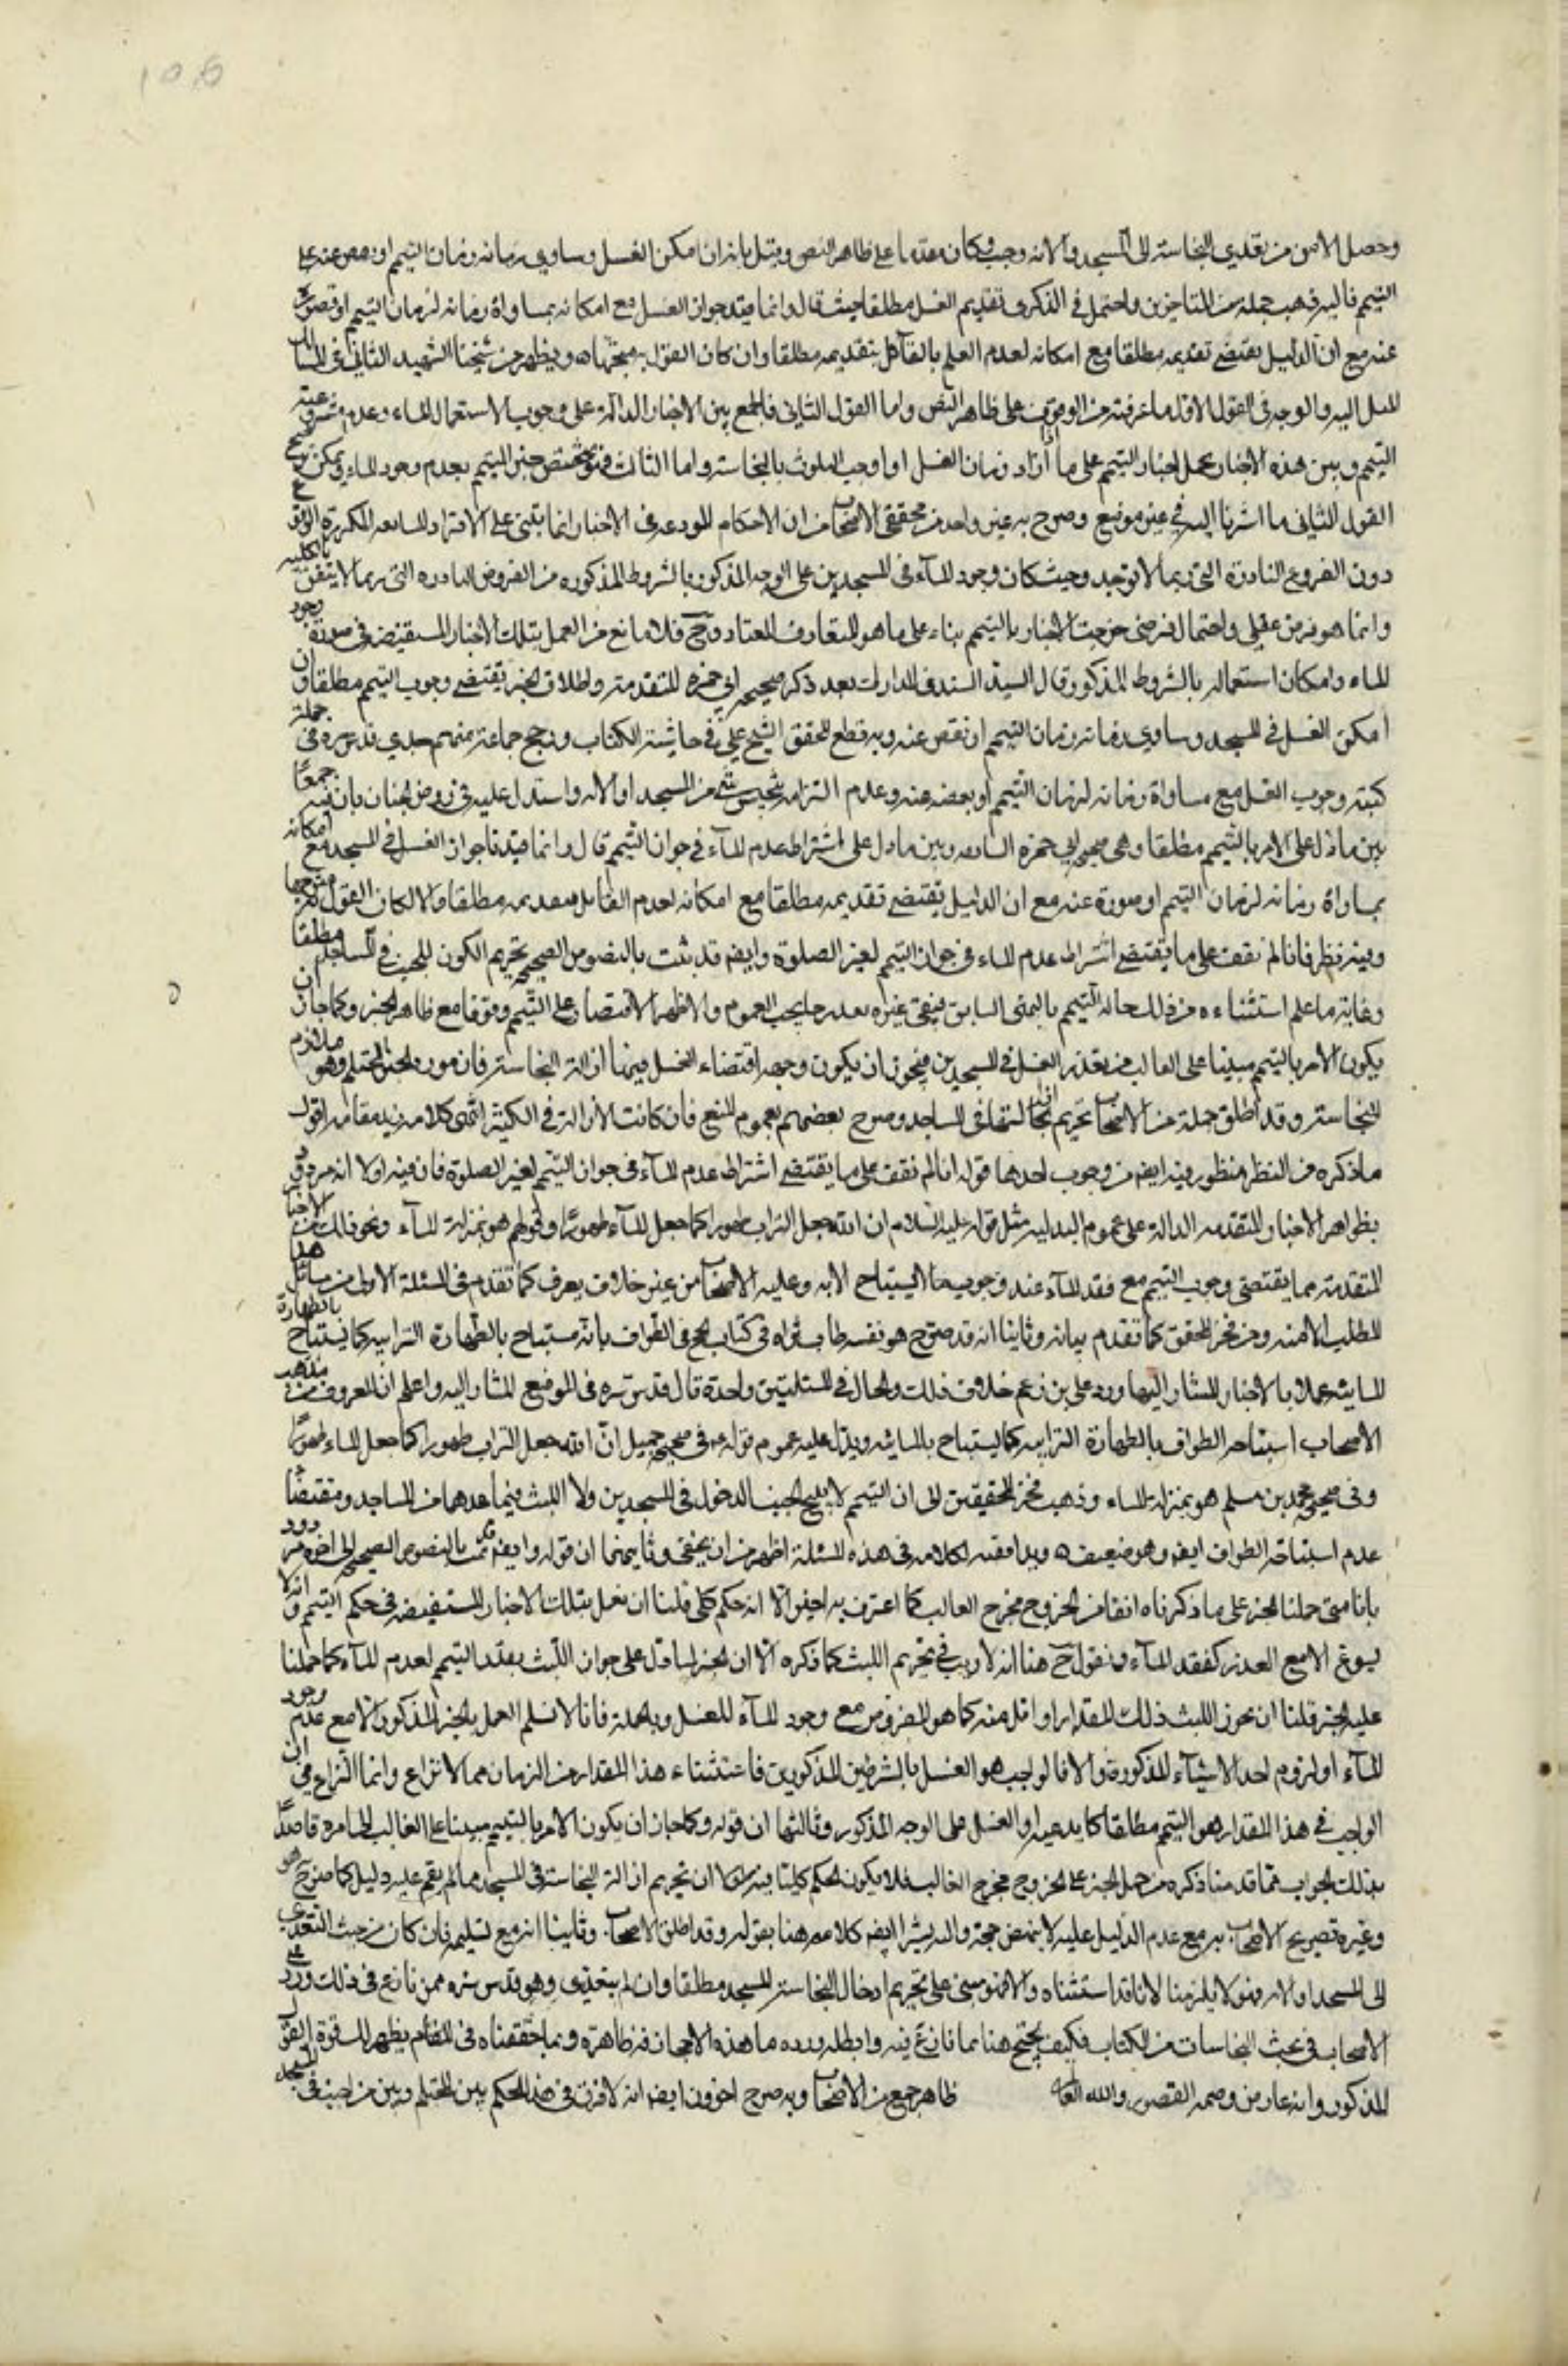 وحصل الامن من تعدي النجاسة الى المسجد والاته وجب وكان مقدما على ظاهر النص وقيل بانه ان امكن الغسل وساوى زمانه زمان التيمم او نقص عنه على
التيمم فاليه ذهب جملة من المتاخرين واحتمل في الذكرى تقديم الغسل مطلقا حيث قال وانما قيد جواز الغسل مع امكانه بمساواة زمانه لزمان التيمم او قصوره
عنه مع ان الدليل يقتضي تقديمه مطلقا مع امكانه لعدم العلم بالقائل بتقديمه مطلقا وان كان القول به متجها ويظهر من شيخنا الشهيد الثاني في المسالك
الميل اليه والوجه في القول الاول ما عرفته من الوقوف على ظاهر النص واما القول الثاني فالجمع بين الاخبار الدالة على وجوب الاستعمال الماء وعدم مشروعية
التيمم وبين هذه الاخبار بحمل اخبار التيمم على ما اذا زاد زمان الغسل او اوجب التلوث بالنجاسة واما الثالث فهو تخصيص التيمم بعدم وجود الماء ويمكن ترجيح
القول الثاني ما اشرنا اليه في غير موضع وصرح به غير واحد من محققي الاصحاب من ان الاحكام المودعة في الاخبار انما تبتنى على الافراد الشايعة المتكررة
دون الفروع النادرة التي ربما لا توجد وحيث كان وجود الماء في المسجدين على الوجه المذكور بالشروط المذكوره من الفروض النادره التي ربما لا يتفق بالكلية
وانما هو فرض عقلي واحتمال فرضي خرجت الاخبار بالتيمم بناء على ما هو المتعارف المعتاد وح فلا مانع من العمل بتلك الاخبار المستفيضة في صورة وجود
الماء وامكان استعماله بالشروط المذكورة قال السيد السند في المدارك بعد ذكر صحيحة ابي حمزه المتقدمة واطلاق الخبر يقتضي وجوب التيمم مطلقا وان
امكن الغسل في المسجد وساوى زمانه زمان التيمم او نقص عنه وبه قطع المحقق الشيخ علي في حاشية الكتاب ورجح جماعة منهم جدي قدس سره في جملة
كتبه وجوب الغسل مع مساواة زمانه لزمان التيمم او نقصه عنه وعدم استلزامه تنجيس شيء من المسجد او الاته واستدل عليه في روض الجنان بان فيه جمعا
بين ما دل على الامر بالتيمم مطلقا وهي صحيحة ابي حمزه السابقة وبين ما دل على اشتراط عدم الماء في جواز التيمم قال وانما قيدنا جواز الغسل في المسجد مع امكانه
بمساواة زمانه لزمان التيمم او قصوره عنه مع ان الدليل يقتضي تقديمه مطلقا مع امكانه لعدم القائل بتقديمه مطلقا والا لكان القول به متوجها
وفيه نظر فانا لم نقف على ما يقتضي اشتراط عدم الماء في جواز التيمم لغير الصلوة وايضا قد ثبت بالنصوص الصحيحة تحريم الكون للجنب في المساجد مطلقا
وغاية ما علم استثناءه من ذلك حالة التيمم بالنص السابق فيبقى غيره مندرجا تحت العموم والاظهر الاقتصار على التيمم وقوفا مع ظاهر الخبر وكما جاز ان
يكون الامر بالتيمم مبنيا على الغالب من تعذر الغسل في المسجدين فيجوز ان يكون وجهه اقتضاء الغسل فيهما ازالة النجاسة فان مورد الخبر المحتلم وهو ملازم
للنجاسة وقد اطلق جملة من الاصحاب تحريم ازالتها في المساجد وصرح بعضهم بعموم المنع فان كانت الازالة في الكثير انتهى كلامه زيد مقامه اقول
ما ذكره من النظر منظور فيه ايضا من وجوب احدها قوله انا لم نقف على ما يقتضي اشتراط عدم الماء في جواز التيمم لغير الصلوة فان فيه اولا انه مردود
بظواهر الاخبار المتقدمة الدالة على عموم البدلية مثل قوله عليه السلام ان الله جعل التراب طهورا كما جعل الماء طهورا وقولهم هو بمنزلة الماء ونحو ذلك من الاخبار
المتقدمة مما يقتضي وجوب التيمم مع فقد الماء عند وجوب ما لا يستباح الا به وعليه الاصحاب من غير خلاف يعرف كما تقدم في المسئلة الاولى من مسائل هذا
المطلب الا منه ومن فخر المحقق كما تقدم بيانه وثانيا انه قد صرح هو نفسه طاب ثراه في كتاب الحج في الطواف بانه مستباح بالطهارة الترابية كما يستباح بالطهارة
المايية عملا بالاخبار المشار اليها وردا على من زعم خلاف ذلك والحال في المسئلتين واحدة قال قدس سره في الموضع المشار اليه واعلم ان المعروف من مذهب
الاصحاب استباحة الطواف بالطهارة الترابية كما يستباح بالمائية ويدل عليه عموم قوله ع في صحيحة جميل ان الله جعل التراب طهورا كما جعل الماء طهورا
وفي صحيحة محمد بن مسلم هو بمنزلة الماء وذهب فخر المحققين الى ان التيمم لا يبيح للجنب الدخول في المسجدين ولا اللبث فيما عداهما من المساجد ومقتضاه
عدم استباحة الطواف ايضا وهو ضعيف ومدافعته لكلامه في هذه المسئلة اظهر من ان يخفى وثانيهما ان قوله وايضا قد ثبت بالنصوص الصحيحة الى اخره مردود
بانا متى حملنا الخبر على ما ذكرناه انفا من الخروج مخرج الغالب كما اعترف به اخيرا لا انه حكم كلي فلنا ان نعمل بتلك الاخبار المستفيضة في حكم التيمم وانه لا
يسوغ الا مع العذر كفقد الماء ونقول ح هنا انه لا ريب في تحريم اللبث كما ذكره الا ان الخبر لما دل على جواز اللبث بقدر التيمم لعدم الماء كما حملنا
عليه الخبر قلنا ان نجوز اللبث ذلك المقدار او اقل منه كما هو المفروض مع وجود الماء للغسل وبالجملة فانا لا نسلم العمل بالخبر المذكور الا مع عدم وجود
الماء او لزوم احد الاشياء المذكورة والا فالواجب هو الغسل بالشرطين المذكورين فاستثناء هذا المقدار من الزمان مما لا نزاع وانما النزاع في ان
الواجب في هذا المقدار هو التيمم مطلقا كما يدعيه او الغسل على الوجه المذكور وثالثها ان قوله وكما جاز ان يكون الامر بالتيمم مبنيا على الغالب الى اخره قاصدا
بذلك الجواب عما قدمنا ذكره من حمل الخبر على الخروج مخرج الغالب فلا يكون الحكم كليا فيه اولا ان تحريم ازالة النجاسة في المسجد مما لم يقم عليه دليل كما صرح به هو
وغيره تصريح الاصحاب به مع عدم الدليل عليه لا ينهض حجة واليه يشير ايضا كلامه هنا بقوله وقد اطلق الاصحاب وثانيا انه مع تسليمه فان كان من حيث التعدي
الى المسجد او الاته فهو لا يلزمنا لانا قد استثناه والا فهو مبني على تحريم ادخال النجاسة المسجد مطلقا وان لم يتعدى وهو قدس سره ممن نازع في ذلك ورد على
الاصحاب في بحث النجاسات من الكتاب فكيف يحتج هنا بما نازع فيه وابطله ورده ما هذه الا مجازفه ظاهرة وبما حققناه في المقام يظهر لك قوة القول
المذكور وانه عار من وصمة القصور والله العالم ظاهر جمع من الاصحاب وبه صرح اخرون ايضا انه لا فرق في هذا الحكم بين المحتلم وبين من اجنب في المسجد